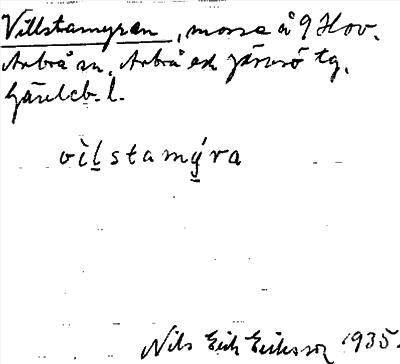 Villstamyran, mosse å 9 Hov.
Arbrå sn. Arbrå och Järvsö tg.
Gävleb. l.
vìlstamýra
Nils Erik Eriksson 1935.